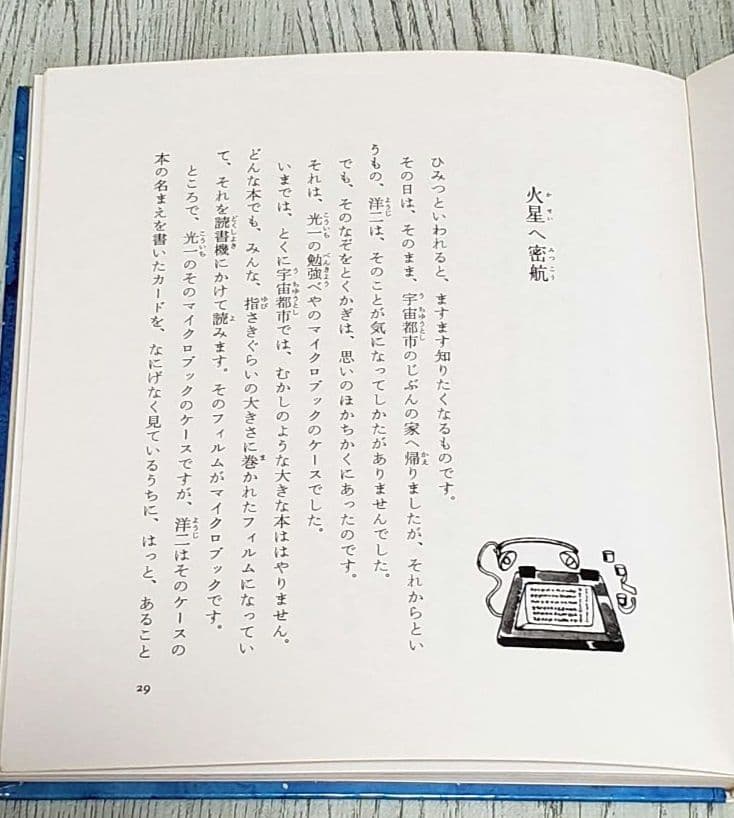 火星へ密航
ひみつといわれると、ますます知りたくなるものです。
その日は、そのまま、宇宙都市のじぶんの家へ帰りましたが、それからとい
うもの、洋二は、そのことが気になってしかたがありませんでした。
でも、そのなぞをとくかぎは、思いのほかちかくにあったのです。
それは、光一の勉強べやのマイクロブックのケースでした。
いまでは、とくに宇宙都市では、むかしのような大きな本ははやりません。
どんな本でも、みんな、指さきぐらいの大きさに巻かれたフィルムになってい
て、それを読書機にかけて読みます。そのフィルムがマイクロブックです。
ところで、光一のそのマイクロブックのケースですが、洋二はそのケースの
本の名まえを書いたカードを、なにげなく見ているうちに、はっと、あること
29